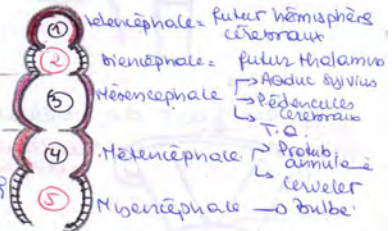 ① télencéphale = futur hémisphère
cérébraux
② Diencéphale = futur thalamus
③ Mésencéphale → Aqduc Sylvius
→ Pédencules
cérébraux
→ T.Q.
④ Métencéphale → Protub
annulaire
→ cervelet
⑤ Myencéphale → Bulbe